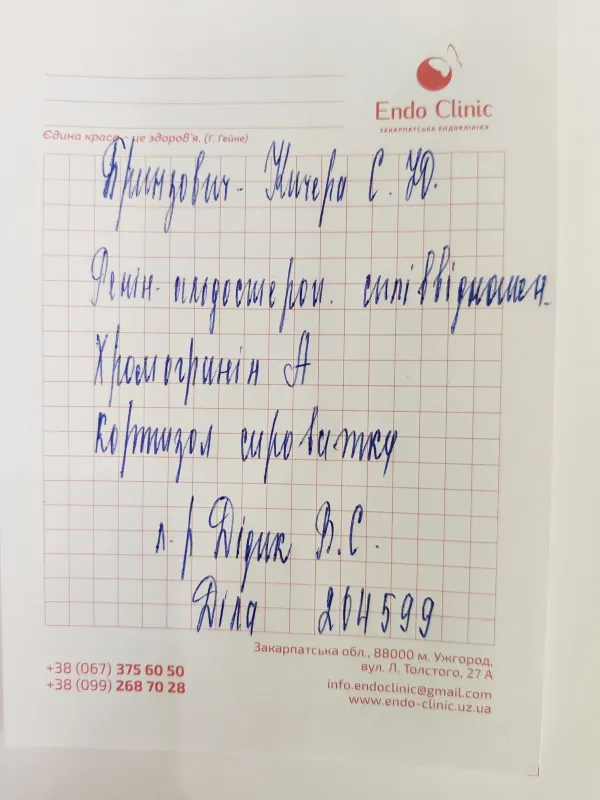 Endo Clinic
ЗАКАРПАТСЬКА ЕНДОКЛІНІКА
Єдина краса – це здоров'я. (Г. Гейне)
Бринзович - Кичера С. Ю.
Ренін - альдостерон. співвідношен.
Хромогранін А
кортизол сироватки
л-р Дідик В.С.
Діла 204599
Закарпатська обл., 88000 м. Ужгород,
вул. Л. Толстого, 27 А
+38 (067) 375 60 50
+38 (099) 268 70 28
info.endoclinic@gmail.com
www.endo-clinic.uz.ua